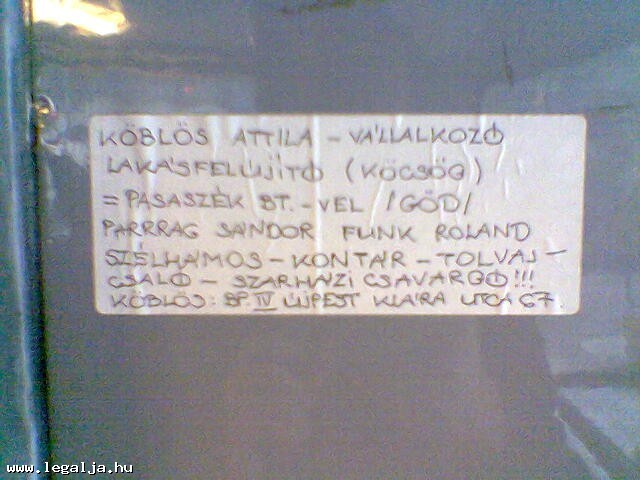 KÖBLÖS ATTILA - VÁLLALKOZÓ
LAKÁSFELÚJÍTÓ (KÖCSÖG)
= PASASZÉK BT. - VEL /GÖD/
PARRRAG SÁNDOR FUNK ROLAND
SZÉLHÁMOS - KONTÁR - TOLVAJ -
CSALÓ - SZARHÁZI CSAVARGÓ!!!
KÖBLÖS: BP. IV ÚJPEST KLÁRA UTCA 67.
www.legalja.hu